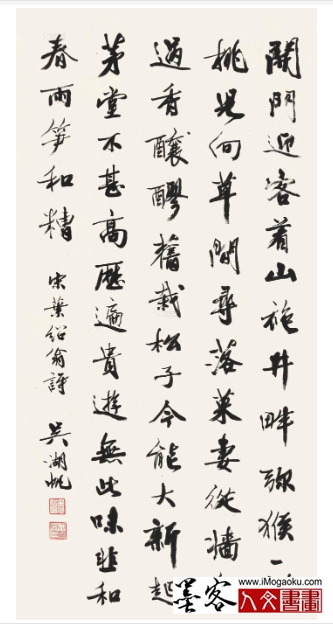 開門迎客着山袍井畔獼猴一
桃兒向草間尋落菓妻從牆
過香釀醪舊栽松子今能大新起
茅堂不甚高歷遍貴遊無此味韭和
春雨笋和糟 宋葉紹翁詩 吳湖帆
墨客
www.iMogaoku.com
人文書畫